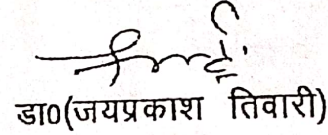 डा0(जयप्रकाश तिवारी)